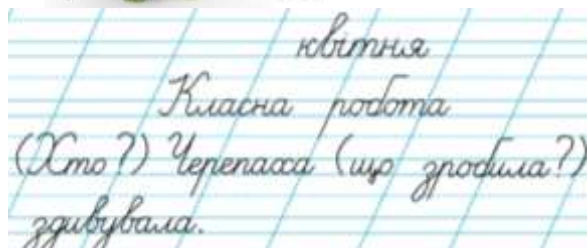 квітня
Класна робота
(Хто?) Черепаха (що зробила?)
здивувала.